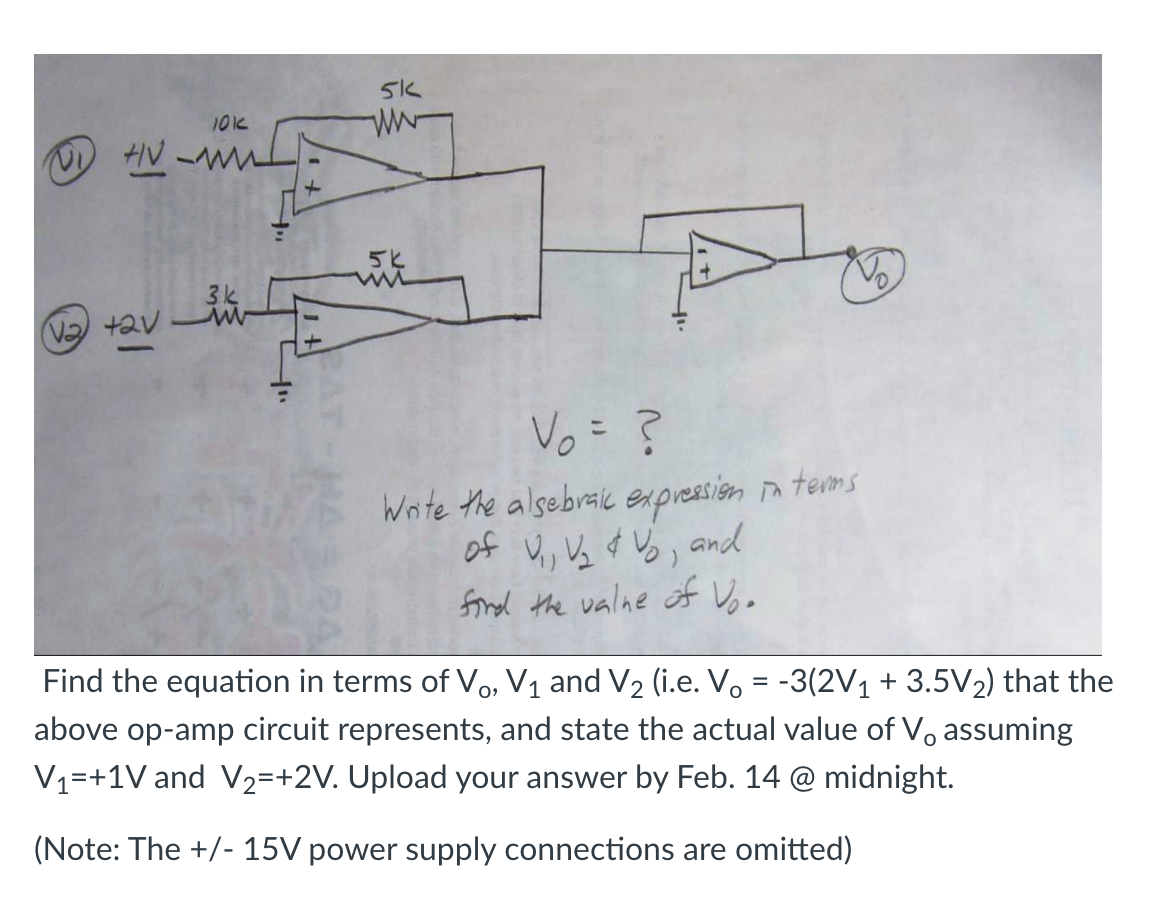 5K
10K
V1 +1V
- +
5K
3K
V2 +2V
- +
- +
Vo
Vo = ?
Write the algebraic expression in terms
of V1, V2 & Vo, and
find the value of Vo.
Find the equation in terms of Vo, V1 and V2 (i.e. Vo = -3(2V1 + 3.5V2) that the
above op-amp circuit represents, and state the actual value of Vo assuming
V1=+1V and V2=+2V. Upload your answer by Feb. 14 @ midnight.
(Note: The +/- 15V power supply connections are omitted)